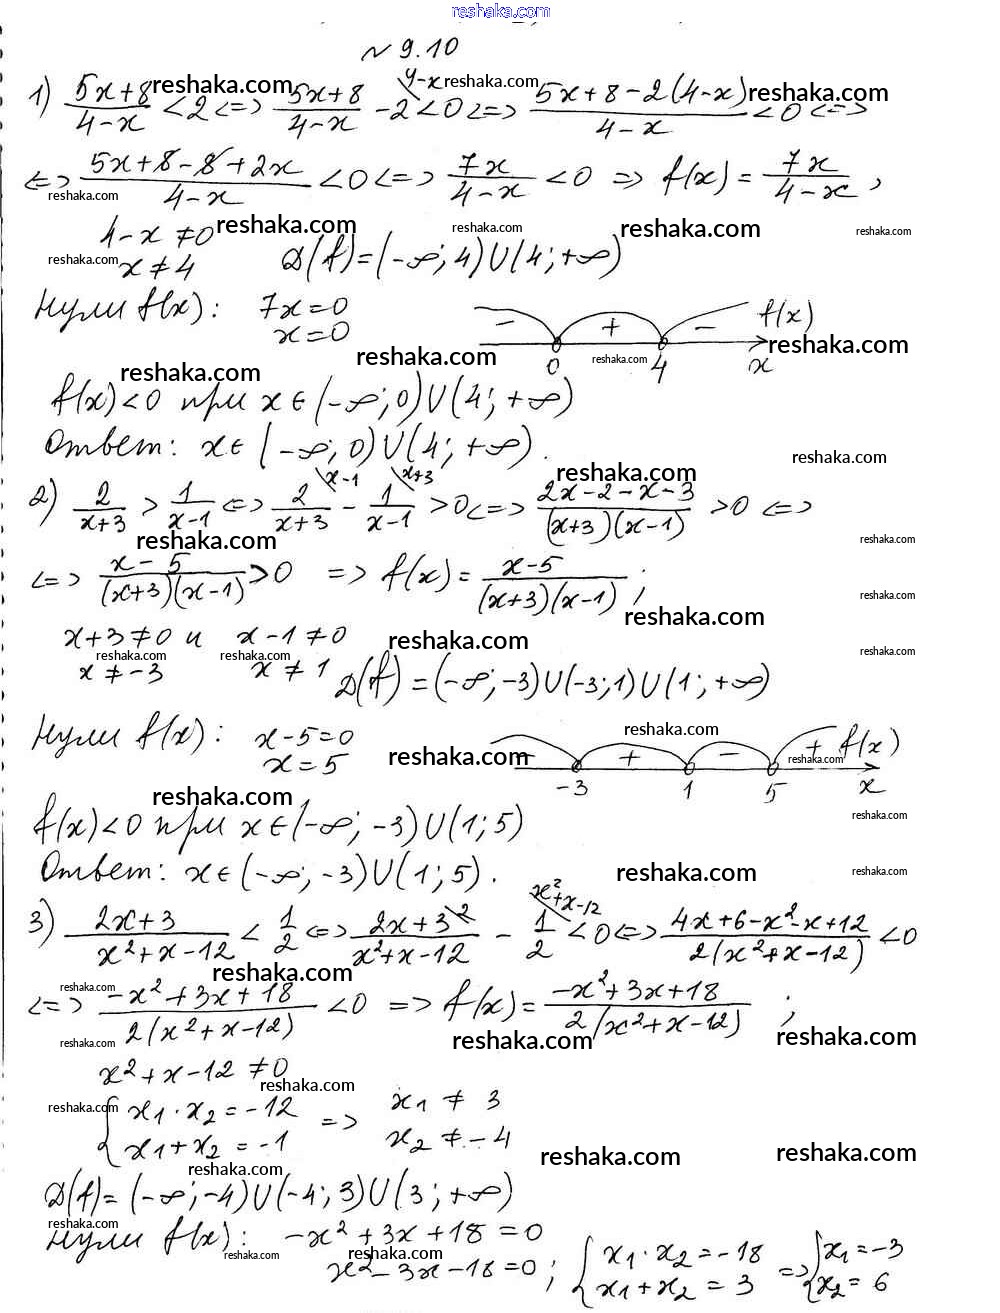 reshaka.com
№ 9.10
1) (5x+8)/(4-x) < 2 <=> (5x+8)/(4-x) - 2 \4-x < 0 <=> (5x+8-2(4-x))/(4-x) < 0 <=>
<=> (5x+8-8+2x)/(4-x) < 0 <=> 7x/(4-x) < 0 => f(x) = 7x/(4-x),
4-x ≠ 0
x ≠ 4 D(f) = (-∞; 4) U (4; +∞)
Нули f(x): 7x = 0
x = 0
- + - f(x)
0 4 x
f(x) < 0 при x ∈ (-∞; 0) U (4; +∞)
Ответ: x ∈ (-∞; 0) U (4; +∞).
2) 2/(x+3) > 1/(x-1) <=> 2/(x+3) \x-1 - 1/(x-1) \x+3 > 0 <=> (2x-2-x-3)/((x+3)(x-1)) > 0 <=>
<=> (x-5)/((x+3)(x-1)) > 0 => f(x) = (x-5)/((x+3)(x-1));
x+3 ≠ 0 и x-1 ≠ 0
x ≠ -3 x ≠ 1 D(f) = (-∞; -3) U (-3; 1) U (1; +∞)
Нули f(x): x-5=0
x = 5
- + - + f(x)
-3 1 5 x
f(x) < 0 при x ∈ (-∞; -3) U (1; 5)
Ответ: x ∈ (-∞; -3) U (1; 5).
3) (2x+3)/(x²+x-12) < 1/2 <=> (2x+3)/(x²+x-12) \2 - 1/2 \x²+x-12 < 0 <=> (4x+6-x²-x+12)/(2(x²+x-12)) < 0
<=> (-x²+3x+18)/(2(x²+x-12)) < 0 => f(x) = (-x²+3x+18)/(2(x²+x-12));
x²+x-12 ≠ 0
{ x₁·x₂ = -12 => x₁ ≠ 3
x₁+x₂ = -1 x₂ ≠ -4
D(f) = (-∞; -4) U (-4; 3) U (3; +∞)
Нули f(x): -x²+3x+18 = 0
x²-3x-18=0; { x₁·x₂ = -18 => { x₁ = -3
x₁+x₂ = 3 x₂ = 6